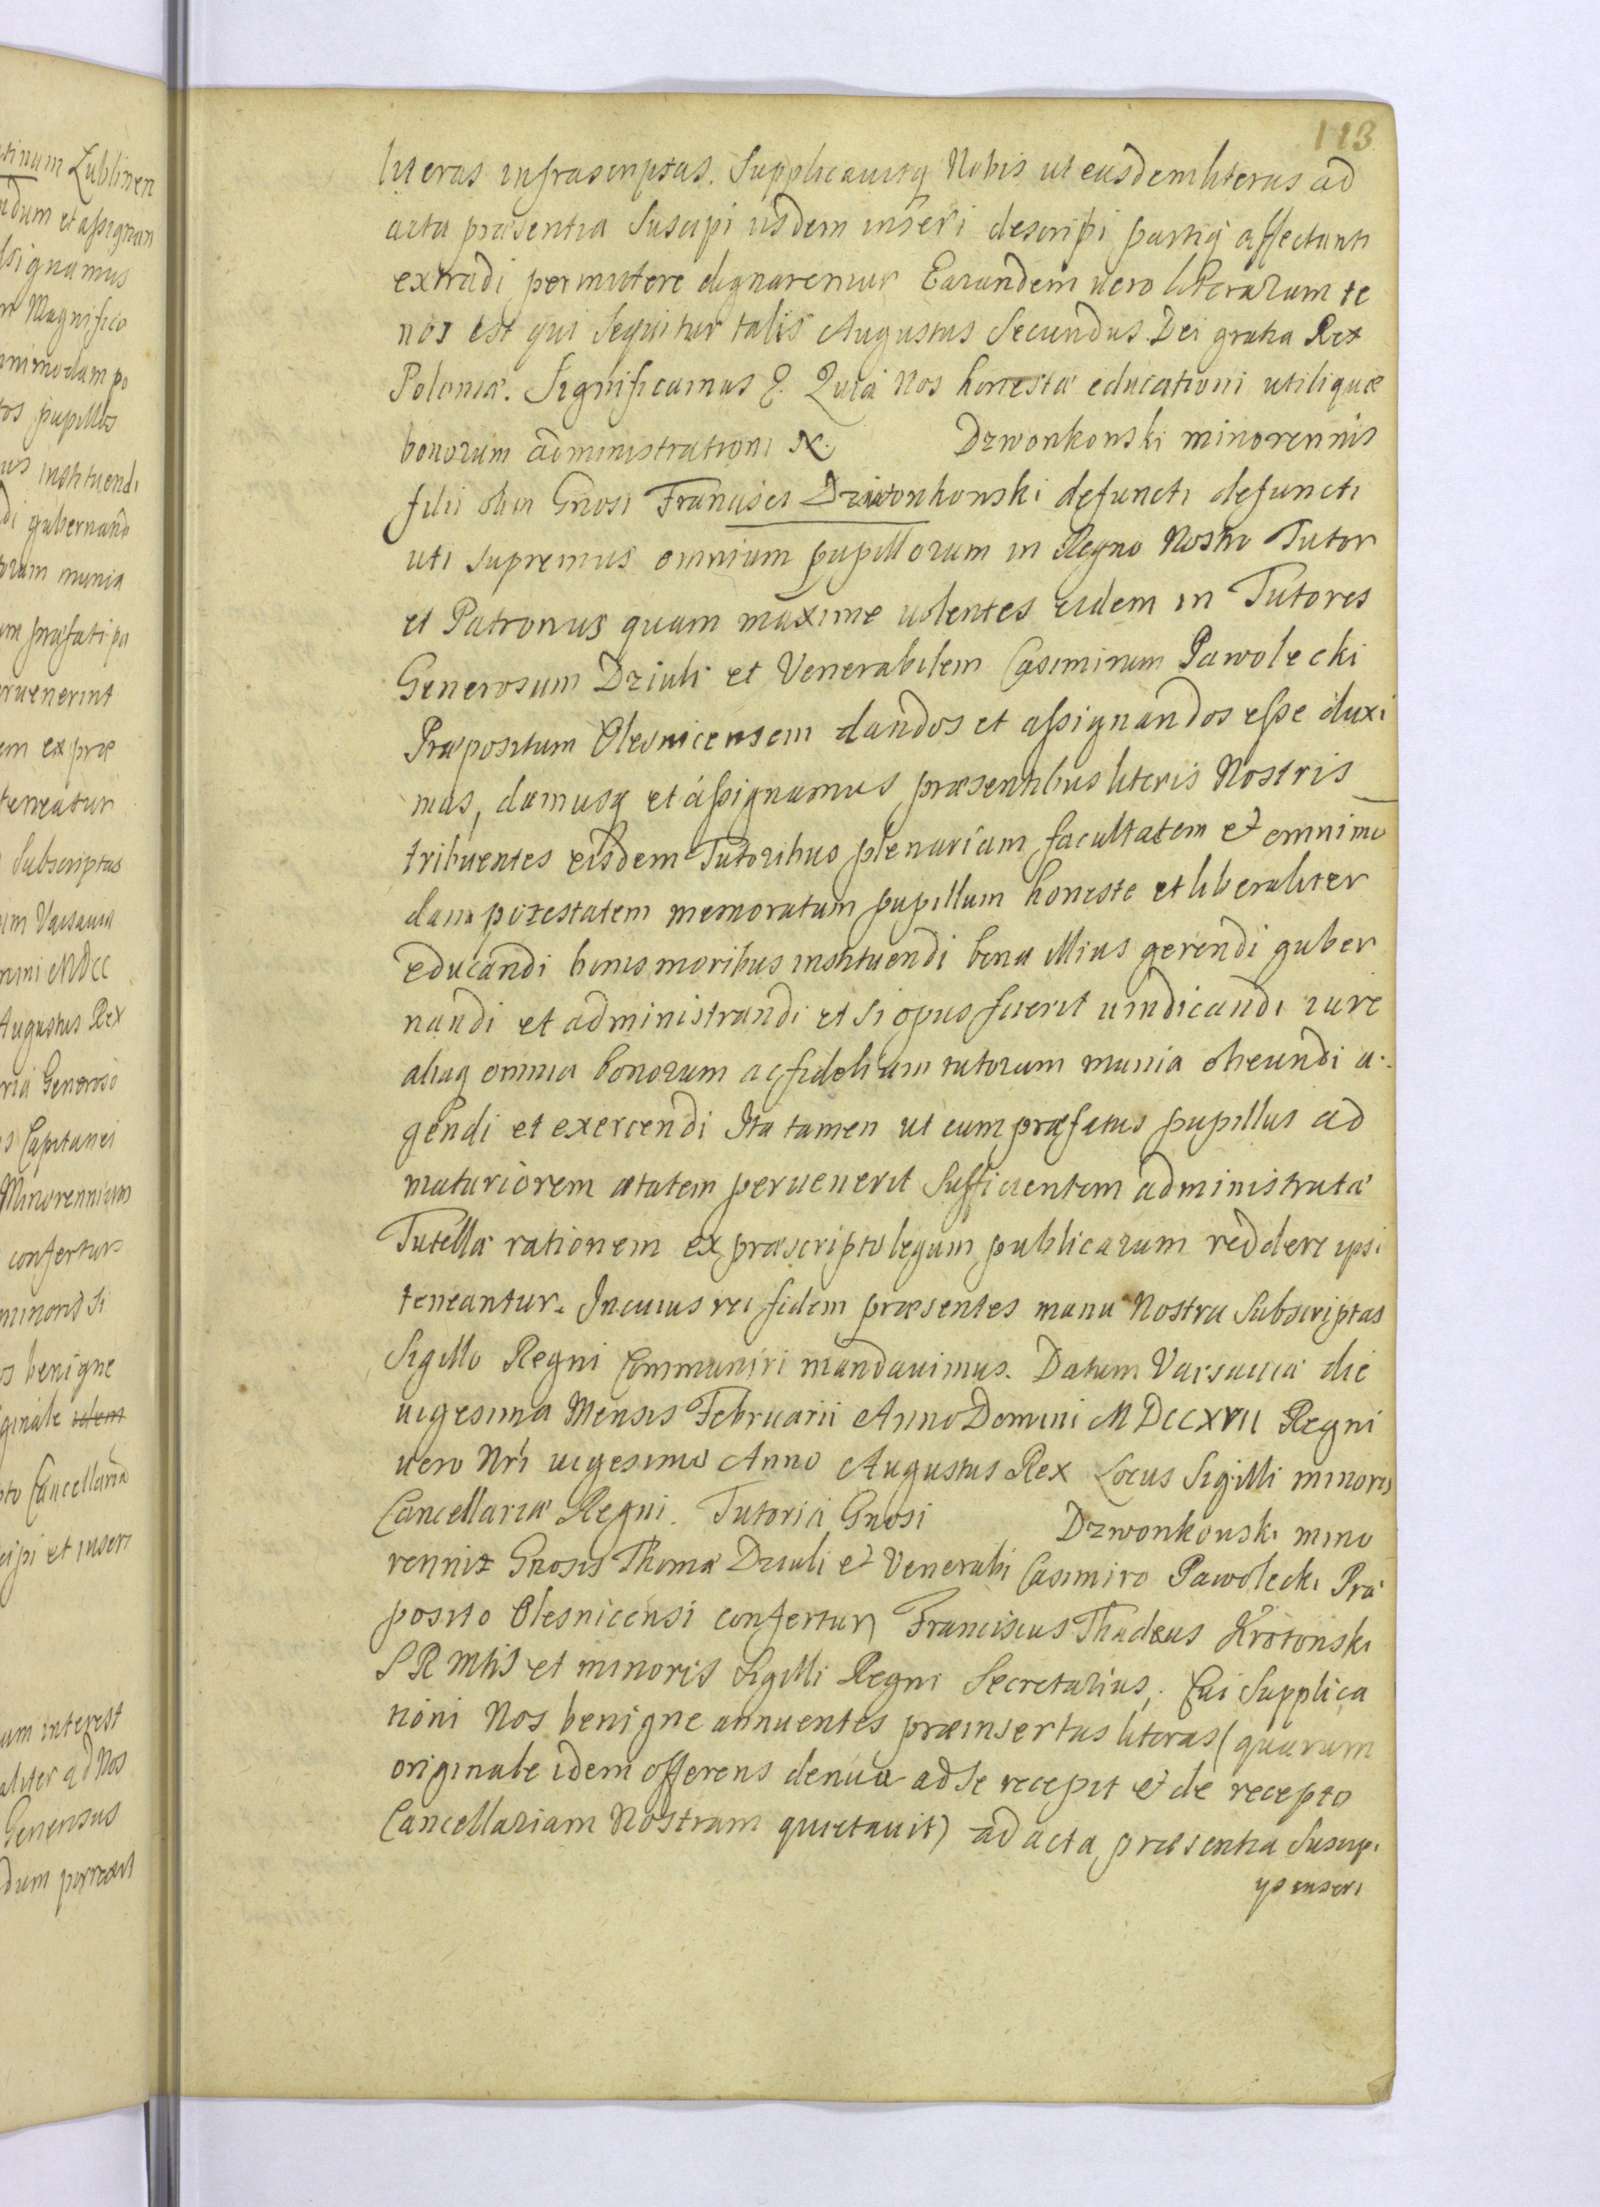 113
literas infrascriptas. Supplicavitq Nobis ut easdem literas ad
acta præsentia Suscipi iisdem inseri describi partiq affectanti
extradi permittere dignaremur Earundem vero literarum te
nor est qui sequitur talis Augustus Secundus Dei gratia Rex
Poloniæ. Significamus &. Quia Nos honestæ educationi utiliquæ
bonorum administrationi N. Dzwonkonski minorennis
filii olim Gnosi Francisci Dzwonkonski defuncti defuncti
uti supremus omnium pupillorum in Regno Nostro Tutor
et Patronus quam maxime volentes eidem in Tutores
Generosum Dziuli et Venerabilem Casimirum Pawolecki
Præpositum Olesnicensem dandos et assignandos esse duxi
mus, damusq et assignamus præsentibus literis Nostris
tribuentes eisdem Tutoribus plenariam facultatem et omnimo
dam potestatem memoratum pupillum honeste et liberaliter
educandi bonis moribus instituendi bona illius gerendi guber
nandi et administrandi et si opus fuerit vindicandi iure
aliaq omnia bonorum ac fidelium tutorum munia obeundi a.
gendi et exercendi Ita tamen ut cum præfatus pupillus ad
maturiorem ætatem pervenerit Sufficientem administratæ
Tutellæ rationem ex præscripto legum publicarum reddere ipsi
teneantur. In cuius rei fidem præsentes manu Nostra Subscriptas
Sigillo Regni Communiri mandavimus. Datum Varsaviæ die
vigesima Mensis Februarii Anno Domini MDCCXVII Regni
vero Nri vigesimo Anno Augustus Rex Locus Sigilli minoris
Cancellariæ Regni. Tutoria Gnosi Dzwonkouski mino
rennis Gnosis Thomæ Dziuli et Venerabi Casimiro Pawolecki Præ
posito Olesnicensi confertur Franciscus Thadeus Krotonski
S R Mtis et minoris Sigilli Regni Secretarius, Cui Supplica
tioni Nos benigne annuentes præinsertas literas (quarum
originale idem offerens denuo ad se recepit et de recepto
Cancellariam Nostram quietavit) ad acta præsentia Suscipi
ys inseri